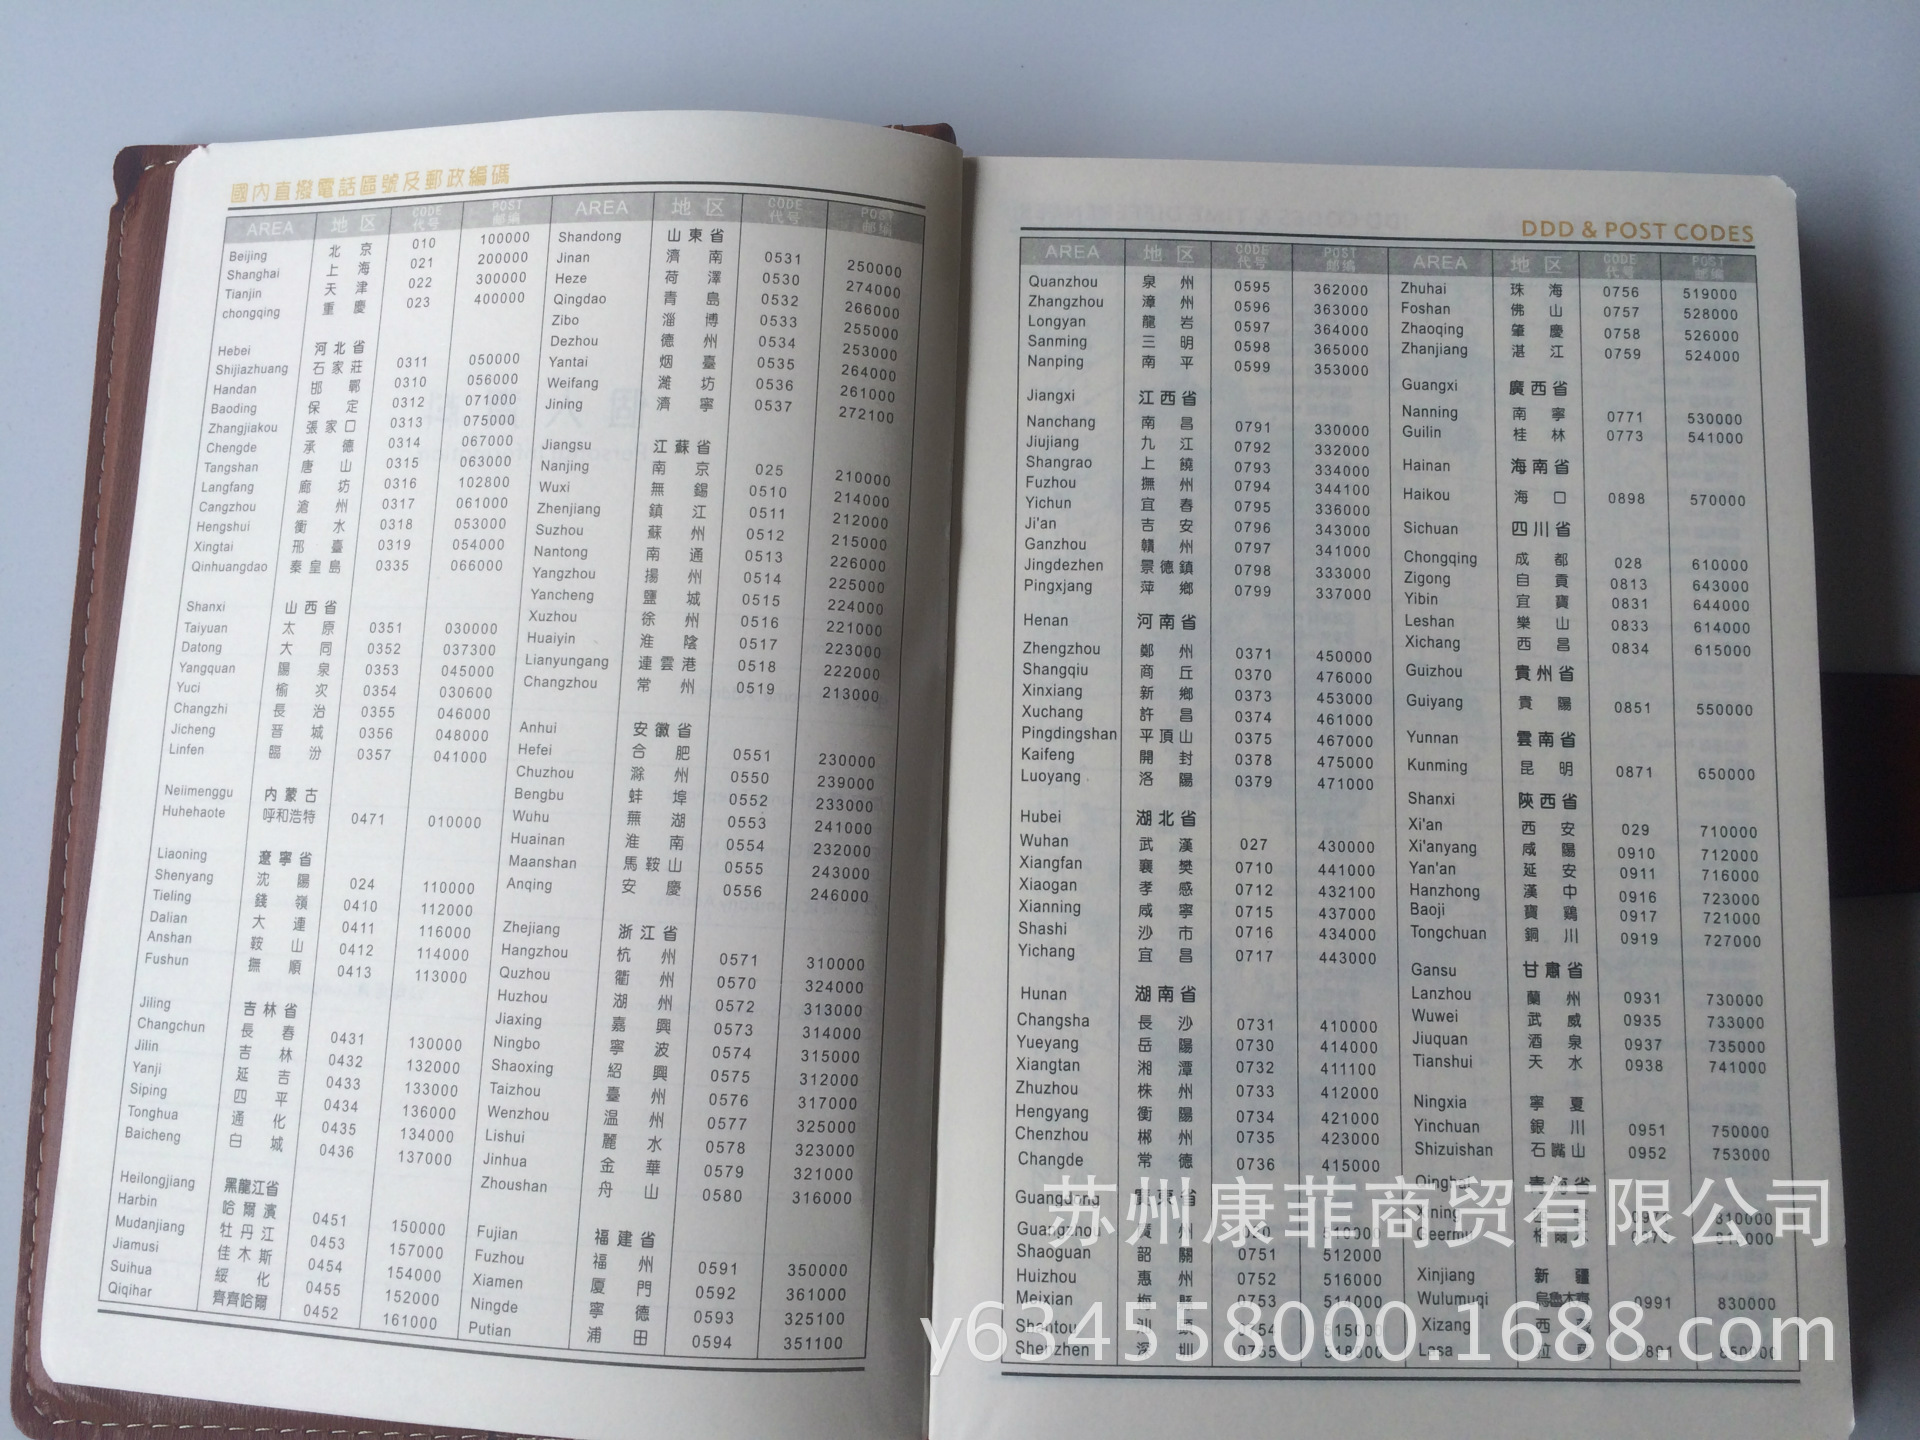 國內直撥電話區號及郵政編碼
AREA 地区 CODE代号 POST邮编
Beijing 北京 010 100000
Shanghai 上海 021 200000
Tianjin 天津 022 300000
chongqing 重慶 023 400000
Hebei 河北省
Shijiazhuang 石家莊 0311 050000
Handan 邯鄲 0310 056000
Baoding 保定 0312 071000
Zhangjiakou 張家口 0313 075000
Chengde 承德 0314 067000
Tangshan 唐山 0315 063000
Langfang 廊坊 0316 102800
Cangzhou 滄州 0317 061000
Hengshui 衡水 0318 053000
Xingtai 邢臺 0319 054000
Qinhuangdao 秦皇島 0335 066000
Shanxi 山西省
Taiyuan 太原 0351 030000
Datong 大同 0352 037300
Yangquan 陽泉 0353 045000
Yuci 榆次 0354 030600
Changzhi 長治 0355 046000
Jicheng 晋城 0356 048000
Linfen 臨汾 0357 041000
Neiimenggu 内蒙古
Huhehaote 呼和浩特 0471 010000
Liaoning 遼寧省
Shenyang 沈陽 024 110000
Tieling 錢嶺 0410 112000
Dalian 大連 0411 116000
Anshan 鞍山 0412 114000
Fushun 撫順 0413 113000
Jiling 吉林省
Changchun 長春 0431 130000
Jilin 吉林 0432 132000
Yanji 延吉 0433 133000
Siping 四平 0434 136000
Tonghua 通化 0435 134000
Baicheng 白城 0436 137000
Heilongjiang 黑龍江省
Harbin 哈爾濱 0451 150000
Mudanjiang 牡丹江 0453 157000
Jiamusi 佳木斯 0454 154000
Suihua 綏化 0455 152000
Qiqihar 齊齊哈爾 0452 161000
AREA 地区 CODE代号 POST邮编
Shandong 山東省
Jinan 濟南 0531 250000
Heze 荷澤 0530 274000
Qingdao 青島 0532 266000
Zibo 淄博 0533 255000
Dezhou 德州 0534 253000
Yantai 烟臺 0535 264000
Weifang 濰坊 0536 261000
Jining 濟寧 0537 272100
Jiangsu 江蘇省
Nanjing 南京 025 210000
Wuxi 無錫 0510 214000
Zhenjiang 鎮江 0511 212000
Suzhou 蘇州 0512 215000
Nantong 南通 0513 226000
Yangzhou 揚州 0514 225000
Yancheng 鹽城 0515 224000
Xuzhou 徐州 0516 221000
Huaiyin 淮陰 0517 223000
Lianyungang 連雲港 0518 222000
Changzhou 常州 0519 213000
Anhui 安徽省
Hefei 合肥 0551 230000
Chuzhou 滁州 0550 239000
Bengbu 蚌埠 0552 233000
Wuhu 蕪湖 0553 241000
Huainan 淮南 0554 232000
Maanshan 馬鞍山 0555 243000
Anqing 安慶 0556 246000
Zhejiang 浙江省
Hangzhou 杭州 0571 310000
Quzhou 衢州 0570 324000
Huzhou 湖州 0572 313000
Jiaxing 嘉興 0573 314000
Ningbo 寧波 0574 315000
Shaoxing 紹興 0575 312000
Taizhou 臺州 0576 317000
Wenzhou 温州 0577 325000
Lishui 麗水 0578 323000
Jinhua 金華 0579 321000
Zhoushan 舟山 0580 316000
Fujian 福建省
Fuzhou 福州 0591 350000
Xiamen 厦門 0592 361000
Ningde 寧德 0593 325100
Putian 浦田 0594 351100
DDD & POST CODES
AREA 地区 CODE代号 POST邮编
Quanzhou 泉州 0595 362000
Zhangzhou 漳州 0596 363000
Longyan 龍岩 0597 364000
Sanming 三明 0598 365000
Nanping 南平 0599 353000
Jiangxi 江西省
Nanchang 南昌 0791 330000
Jiujiang 九江 0792 332000
Shangrao 上饒 0793 334000
Fuzhou 撫州 0794 344100
Yichun 宜春 0795 336000
Ji'an 吉安 0796 343000
Ganzhou 贛州 0797 341000
Jingdezhen 景德鎮 0798 333000
Pingxjang 萍鄉 0799 337000
Henan 河南省
Zhengzhou 鄭州 0371 450000
Shangqiu 商丘 0370 476000
Xinxiang 新鄉 0373 453000
Xuchang 許昌 0374 461000
Pingdingshan 平頂山 0375 467000
Kaifeng 開封 0378 475000
Luoyang 洛陽 0379 471000
Hubei 湖北省
Wuhan 武漢 027 430000
Xiangfan 襄樊 0710 441000
Xiaogan 孝感 0712 432100
Xianning 咸寧 0715 437000
Shashi 沙市 0716 434000
Yichang 宜昌 0717 443000
Hunan 湖南省
Changsha 長沙 0731 410000
Yueyang 岳陽 0730 414000
Xiangtan 湘潭 0732 411100
Zhuzhou 株州 0733 412000
Hengyang 衡陽 0734 421000
Chenzhou 郴州 0735 423000
Changde 常德 0736 415000
GuangJong 廣東省
Guangzhou 廣州 020 510000
Shaoguan 韶關 0751 512000
Huizhou 惠州 0752 516000
Meixian 梅縣 0753 514000
Shantou 汕頭 0754 515000
Shenzhen 深圳 0755 518000
AREA 地区 CODE代号 POST邮编
Zhuhai 珠海 0756 519000
Foshan 佛山 0757 528000
Zhaoqing 肇慶 0758 526000
Zhanjiang 湛江 0759 524000
Guangxi 廣西省
Nanning 南寧 0771 530000
Guilin 桂林 0773 541000
Hainan 海南省
Haikou 海口 0898 570000
Sichuan 四川省
Chongqing 成都 028 610000
Zigong 自貢 0813 643000
Yibin 宜賓 0831 644000
Leshan 樂山 0833 614000
Xichang 西昌 0834 615000
Guizhou 貴州省
Guiyang 貴陽 0851 550000
Yunnan 雲南省
Kunming 昆明 0871 650000
Shanxi 陝西省
Xi'an 西安 029 710000
Xi'anyang 咸陽 0910 712000
Yan'an 延安 0911 716000
Hanzhong 漢中 0916 723000
Baoji 寶鷄 0917 721000
Tongchuan 銅川 0919 727000
Gansu 甘肅省
Lanzhou 蘭州 0931 730000
Wuwei 武威 0935 733000
Jiuquan 酒泉 0937 735000
Tianshui 天水 0938 741000
Ningxia 寧夏
Yinchuan 銀川 0951 750000
Shizuishan 石嘴山 0952 753000
Qinghai 青海省
Xining
Geermu
Xinjiang 新疆
Wulumuqi 烏魯木齊 0991 830000
Xizang 西藏
Lasa 拉薩
苏州康菲商贸有限公司
y634558000.1688.com